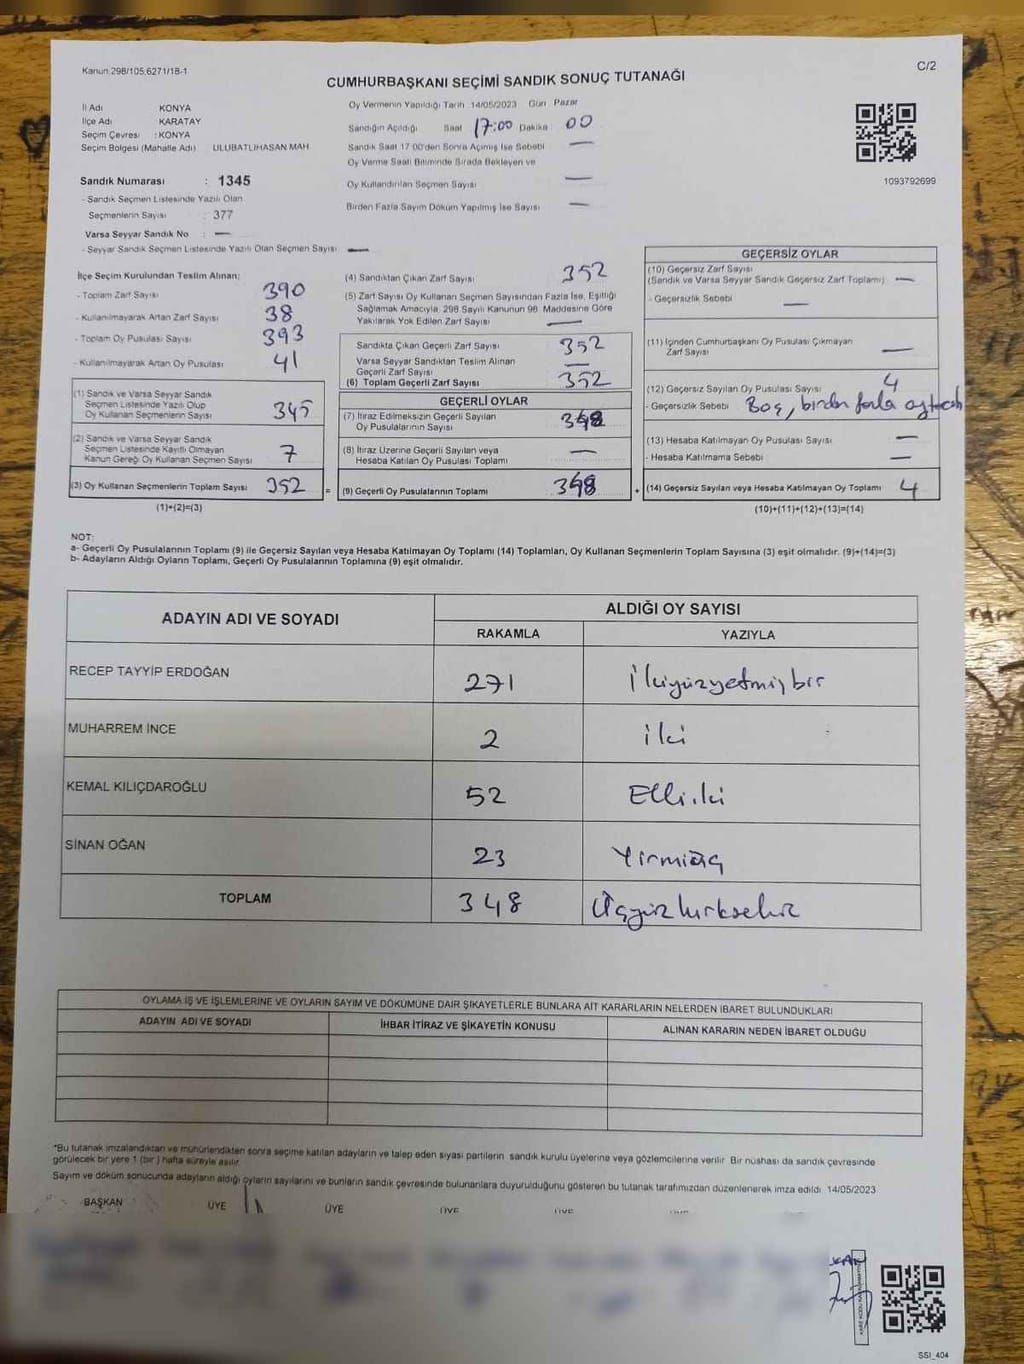 Kanun.298/105,6271/18-1
C/2
CUMHURBAŞKANI SEÇİMİ SANDIK SONUÇ TUTANAĞI
İl Adı KONYA
İlçe Adı KARATAY
Seçim Çevresi : KONYA
Seçim Bölgesi (Mahalle Adı) ULUBATLIHASAN MAH
Sandık Numarası : 1345
- Sandık Seçmen Listesinde Yazılı Olan
Seçmenlerin Sayısı : 377
Varsa Seyyar Sandık No : —
- Seyyar Sandık Seçmen Listesinde Yazılı Olan Seçmen Sayısı —
Oy Vermenin Yapıldığı Tarih 14/05/2023 Gün Pazar
Sandığın Açıldığı Saat 17:00 Dakika 00
Sandık Saat 17:00'den Sonra Açılmış İse Sebebi —
Oy Verme Saati Bitiminde Sırada Bekleyen ve
Oy Kullandırılan Seçmen Sayısı —
Birden Fazla Sayım Döküm Yapılmış İse Sayısı —
1093792699
İlçe Seçim Kurulundan Teslim Alınan:
- Toplam Zarf Sayısı 390
- Kullanılmayarak Artan Zarf Sayısı 38
- Toplam Oy Pusulası Sayısı 393
- Kullanılmayarak Artan Oy Pusulası 41
(1) Sandık ve Varsa Seyyar Sandık
Seçmen Listesinde Yazılı Olup
Oy Kullanan Seçmenlerin Sayısı 345
(2) Sandık ve Varsa Seyyar Sandık
Seçmen Listesinde Kayıtlı Olmayan
Kanun Gereği Oy Kullanan Seçmen Sayısı 7
(3) Oy Kullanan Seçmenlerin Toplam Sayısı 352
(1)+(2)=(3)
(4) Sandıktan Çıkan Zarf Sayısı 352
(5) Zarf Sayısı Oy Kullanan Seçmen Sayısından Fazla İse, Eşitliği
Sağlamak Amacıyla, 298 Sayılı Kanunun 98. Maddesine Göre
Yakılarak Yok Edilen Zarf Sayısı —
Sandıkta Çıkan Geçerli Zarf Sayısı 352
Varsa Seyyar Sandıktan Teslim Alınan
Geçerli Zarf Sayısı —
(6) Toplam Geçerli Zarf Sayısı 352
GEÇERLİ OYLAR
(7) İtiraz Edilmeksizin Geçerli Sayılan
Oy Pusulalarının Sayısı 348
(8) İtiraz Üzerine Geçerli Sayılan veya
Hesaba Katılan Oy Pusulası Toplamı —
= (9) Geçerli Oy Pusulalarının Toplamı 348 +
GEÇERSİZ OYLAR
(10) Geçersiz Zarf Sayısı
(Sandık ve Varsa Seyyar Sandık Geçersiz Zarf Toplamı) —
- Geçersizlik Sebebi —
(11) İçinden Cumhurbaşkanı Oy Pusulası Çıkmayan
Zarf Sayısı —
(12) Geçersiz Sayılan Oy Pusulası Sayısı 4
- Geçersizlik Sebebi Boş, birden fazla
(13) Hesaba Katılmayan Oy Pusulası Sayısı —
- Hesaba Katılmama Sebebi —
(14) Geçersiz Sayılan veya Hesaba Katılmayan Oy Toplamı 4
(10)+(11)+(12)+(13)=(14)
NOT:
a- Geçerli Oy Pusulalarının Toplamı (9) ile Geçersiz Sayılan veya Hesaba Katılmayan Oy Toplamı (14) Toplamları, Oy Kullanan Seçmenlerin Toplam Sayısına (3) eşit olmalıdır. (9)+(14)=(3)
b- Adayların Aldığı Oyların Toplamı, Geçerli Oy Pusulalarının Toplamına (9) eşit olmalıdır.
ADAYIN ADI VE SOYADI
ALDIĞI OY SAYISI
RAKAMLA YAZIYLA
RECEP TAYYİP ERDOĞAN 271 İkiyüzyetmişbir
MUHARREM İNCE 2 iki
KEMAL KILIÇDAROĞLU 52 Elliiki
SİNAN OĞAN 23 Yirmiüç
TOPLAM 348 Üçyüzkırksekiz
OYLAMA İŞ VE İŞLEMLERİNE VE OYLARIN SAYIM VE DÖKÜMÜNE DAİR ŞİKAYETLERLE BUNLARA AİT KARARLARIN NELERDEN İBARET BULUNDUKLARI
ADAYIN ADI VE SOYADI İHBAR İTİRAZ VE ŞİKAYETİN KONUSU ALINAN KARARIN NEDEN İBARET OLDUĞU
*Bu tutanak imzalandıktan ve mühürlendikten sonra seçime katılan adayların ve talep eden siyasi partilerin sandık kurulu üyelerine veya gözlemcilerine verilir. Bir nüshası da sandık çevresinde
görülecek bir yere 1 (bir) hafta süreyle asılır.
Sayım ve döküm sonucunda adayların aldığı oyların sayılarını ve bunların sandık çevresinde bulunanlara duyurulduğunu gösteren bu tutanak tarafımızdan düzenlenerek imza edildi. 14/05/2023
BAŞKAN ÜYE ÜYE ÜYE ÜYE
SSİ_404